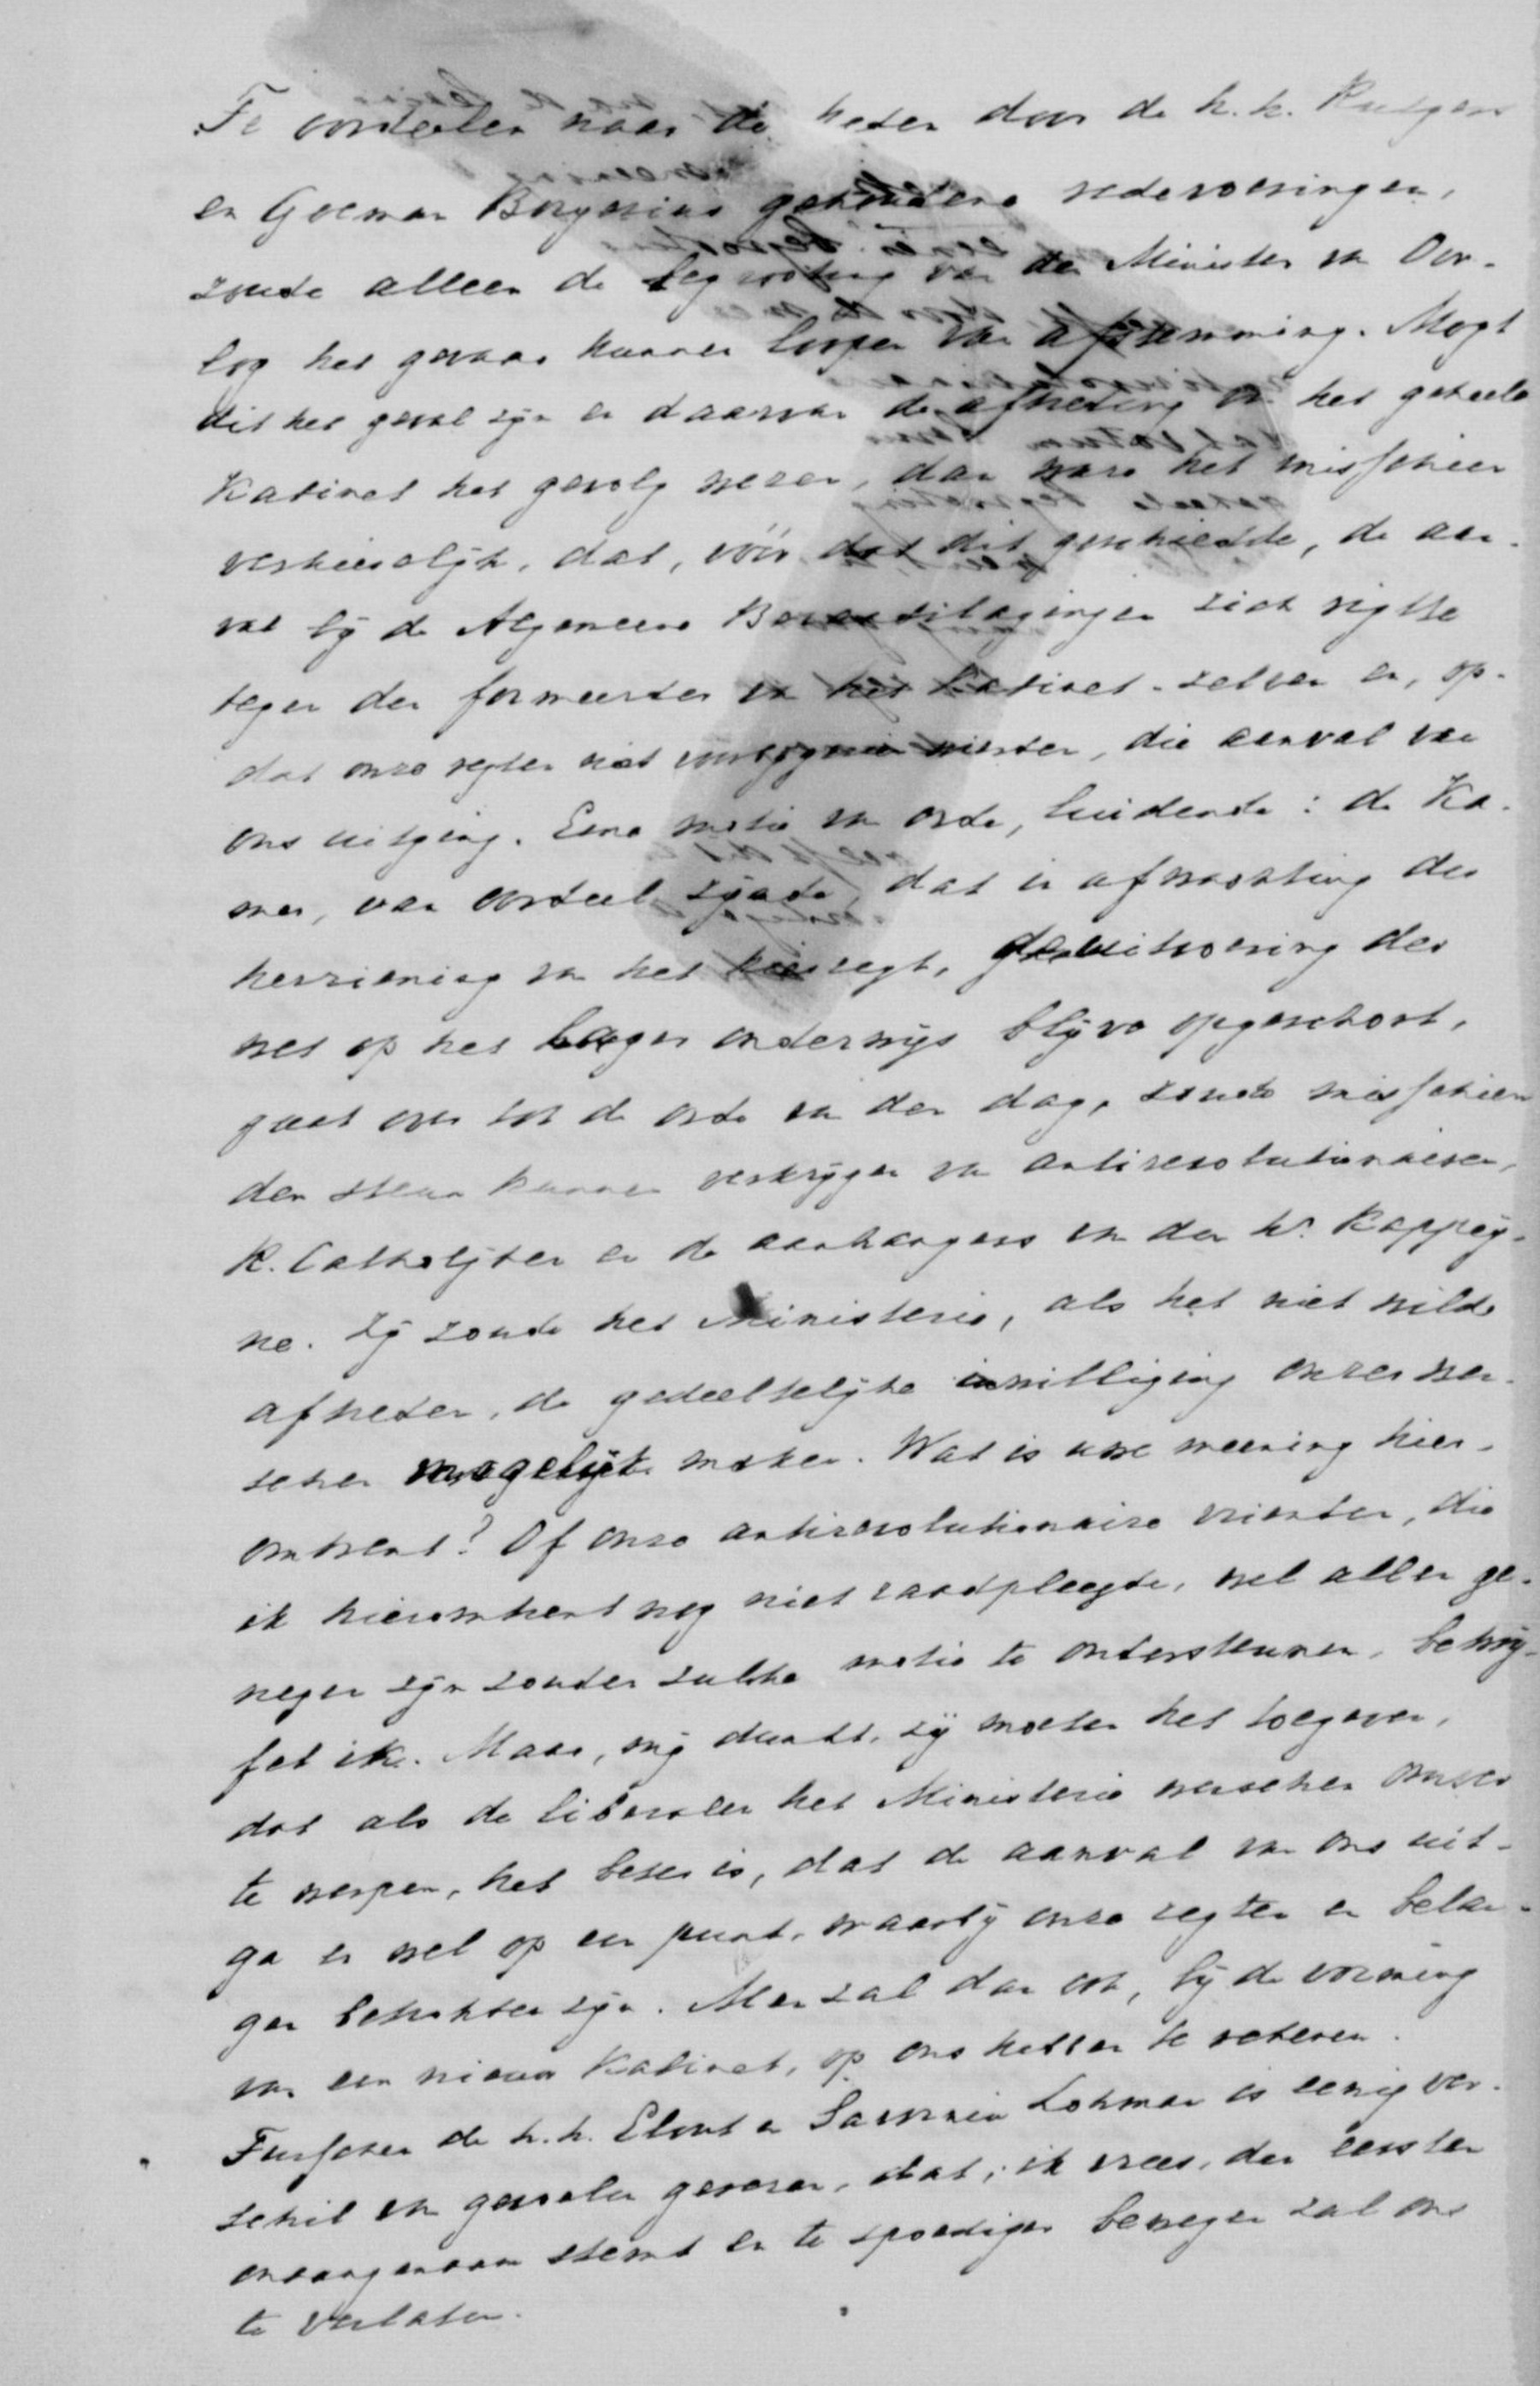 Te oordeelen naar de heden door de h.h. Rutgers
en Goeman Borgesius gehoudene redevoeringen,
zoude alleen de begrooting van den Minister van Oor-
log het gevaar kunnen loopen van afstemming. Mogt
dit het geval zijn en daarvan de aftreding van het geheele
Kabinet het gevolg wezen, dan ware het misschien
verkieselijk, dat, vóór dat dit geschiedde, de aan-
val bij de Algemeene Beraadslagingen zich rigtte
tegen den formeerder van het Kabinet-zelven en, op-
dat onze regten niet wierden, die aanval van
ons uitging. Eene motie van orde, luidende: de Ka-
mer, van oordeel zijnde, dat in afwachting der
herziening van het kiesregt, de uitvoering der
wet op het lager onderwijs blijve opgeschort,
gaat over tot de orde van den dag, zoude misschien
den steun kunnen verkrijgen van antirevolutionairen,
R. Catholijken en de aanhangers van den hr. Kappeij-
ne. Zij zoude het Ministerie, als het niet wilde
aftreden, de gedeeltelijke inwilliging onzer wen-
schen mogelijk maken. Wat is uwe meening hier-
omtrent? Of onze antirevolutionaire vrienden, die
ik hieromtrent nog niet raadpleegde, wel allen ge-
negen zijn zouden zulke motie te ondersteunen, betwij-
fel ik. Maar, mij dunkt, zij moeten het toegeven,
dat als de liberalen het Ministerie wenschen omver
te werpen, het beter is, dat de aanval van ons uit-
ga en wel op een punt, waarbij onze regten en belan-
gen betrokken zijn. Men zal dan ook, bij de vorming
van een nieuw Kabinet, op ons hebben te rekenen.
Tusschen de h.h. Elout en Savornin Lohman is eenig ver-
schil van gevoelen gerezen, dat, ik vrees, den eersten
onaangenaam stemt en te spoediger bewegen zal ons
te verlaten.